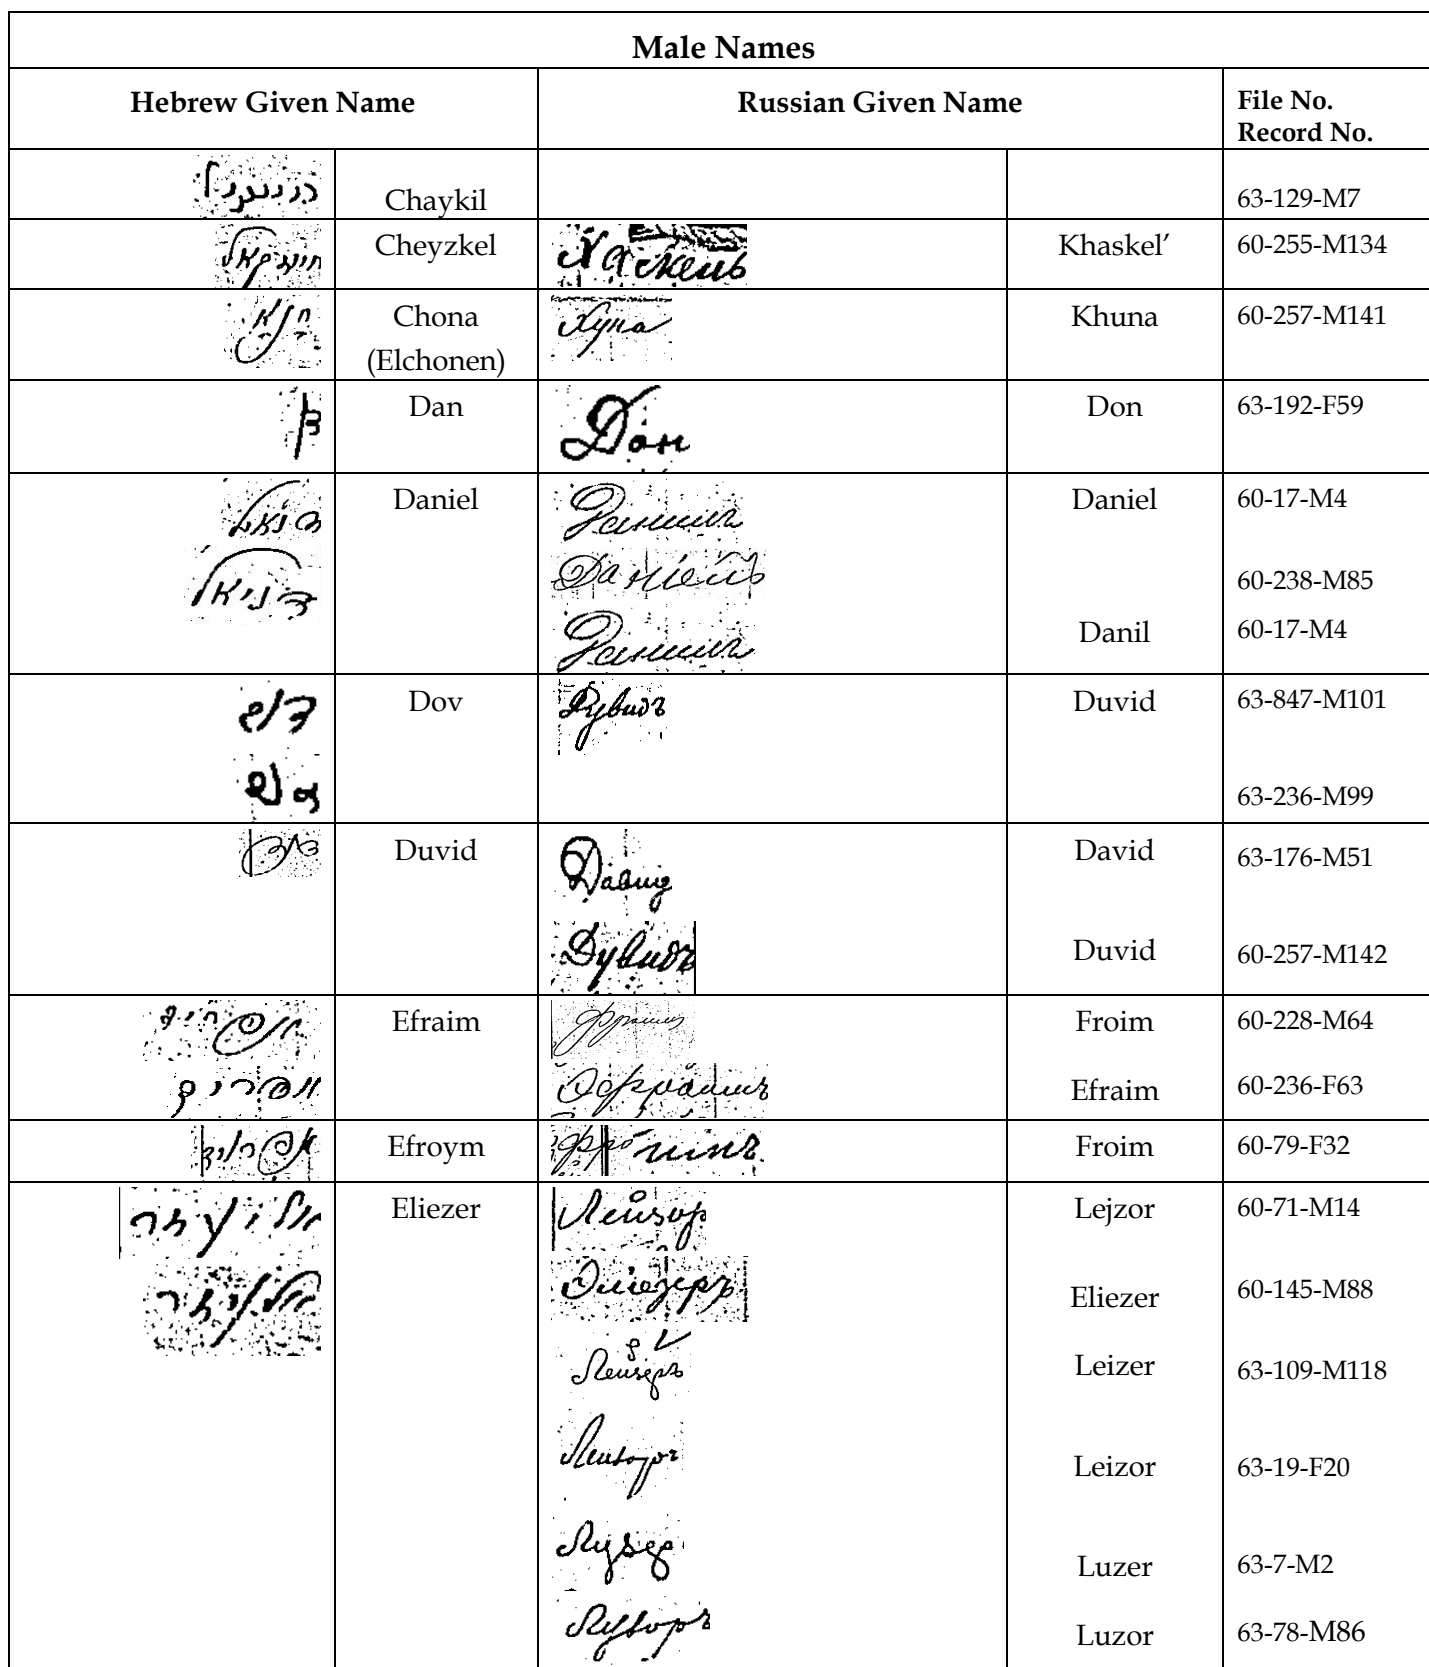 Male Names
Hebrew Given Name Russian Given Name File No.
Record No.
Chaykil 63-129-M7
Cheyzkel Хаскель Khaskel’ 60-255-M134
חנא Chona Хуна Khuna 60-257-M141
(Elchonen)
דן Dan Дон Don 63-192-F59
דניאל Daniel Даниилъ Daniel 60-17-M4
דניאל Даніелъ 60-238-M85
Даниилъ Danil 60-17-M4
דוב Dov Дувидъ Duvid 63-847-M101
דוב 63-236-M99
דוד Duvid Давид David 63-176-M51
Дувидъ Duvid 60-257-M142
אפרים Efraim Фроим Froim 60-228-M64
אפרים Эфраимъ Efraim 60-236-F63
Efroym Фроимъ Froim 60-79-F32
אליעזר Eliezer Лейзор Lejzor 60-71-M14
אליעזר Эліезеръ Eliezer 60-145-M88
Лейзеръ Leizer 63-109-M118
Лейзоръ Leizor 63-19-F20
Лузер Luzer 63-7-M2
Лузоръ Luzor 63-78-M86